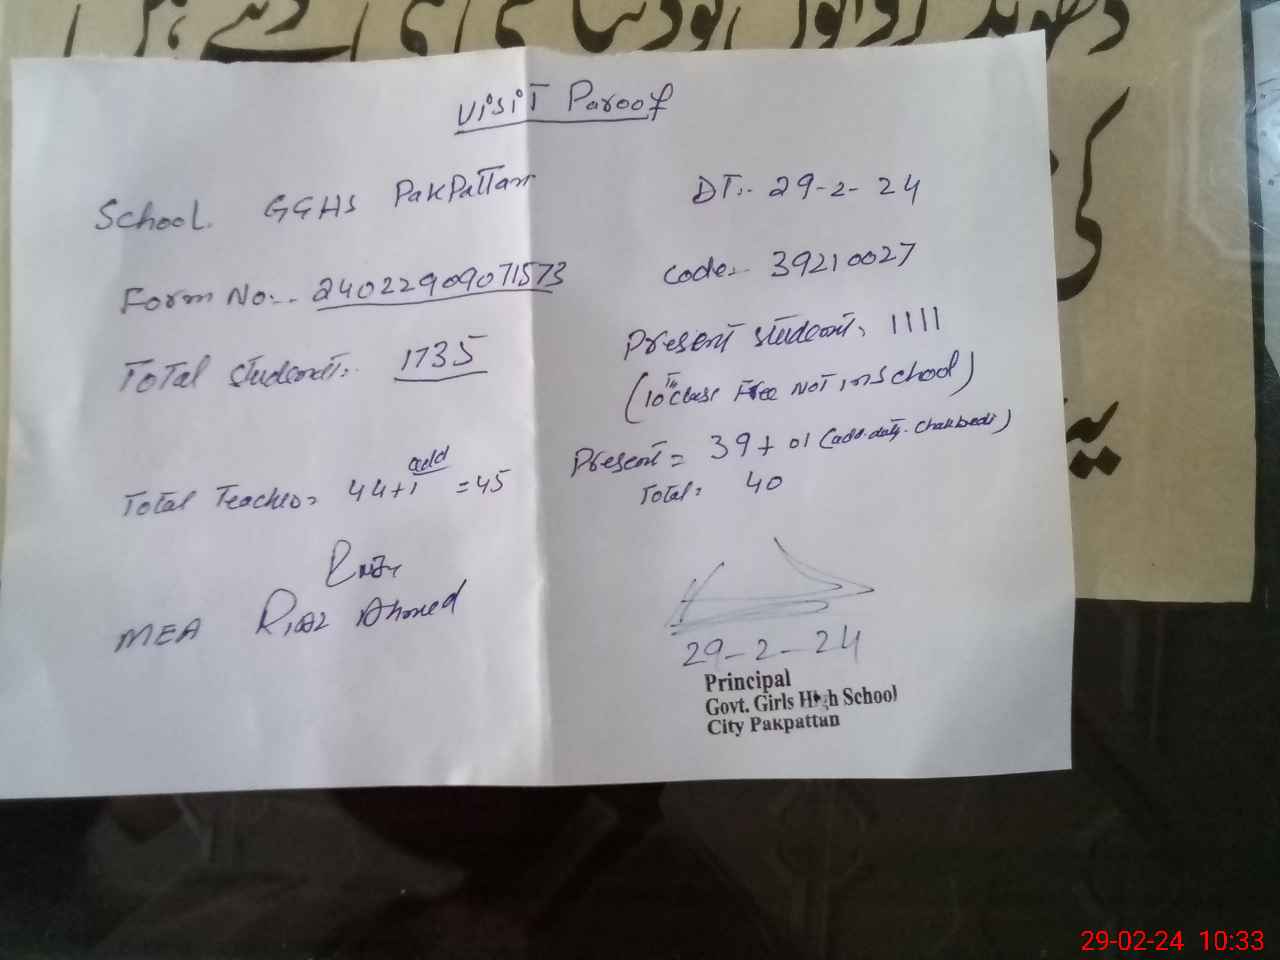 ViSiT Paroof
School. GGHS PakPattan
DT:- 29-2-24
Form No:- 24022909071573
Code:- 39210027
Total Student:- 1735
Present Student: 1111
(10th class Free NOT in School)
Total Teacher= 44+1 add =45
Present= 39+01 (add. duty. Chakbedi)
Total= 40
MEA Riaz Ahmed
29-2-24
Principal
Govt. Girls High School
City Pakpattan
29-02-24 10:33